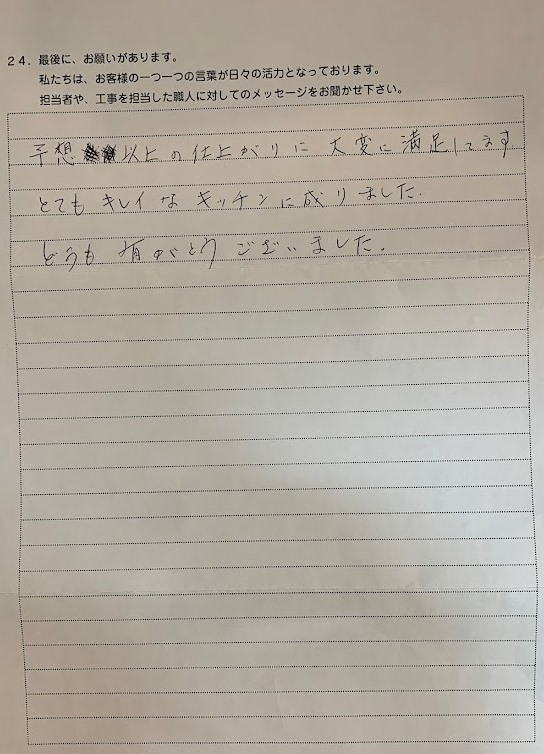 24. 最後に、お願いがあります。
私たちは、お客様の一つ一つの言葉が日々の活力となっております。
担当者や、工事を担当した職人に対してのメッセージをお聞かせ下さい。
予想以上の仕上がりに大変に満足してます
とてもキレイなキッチンに成りました.
どうも有がとうございました.